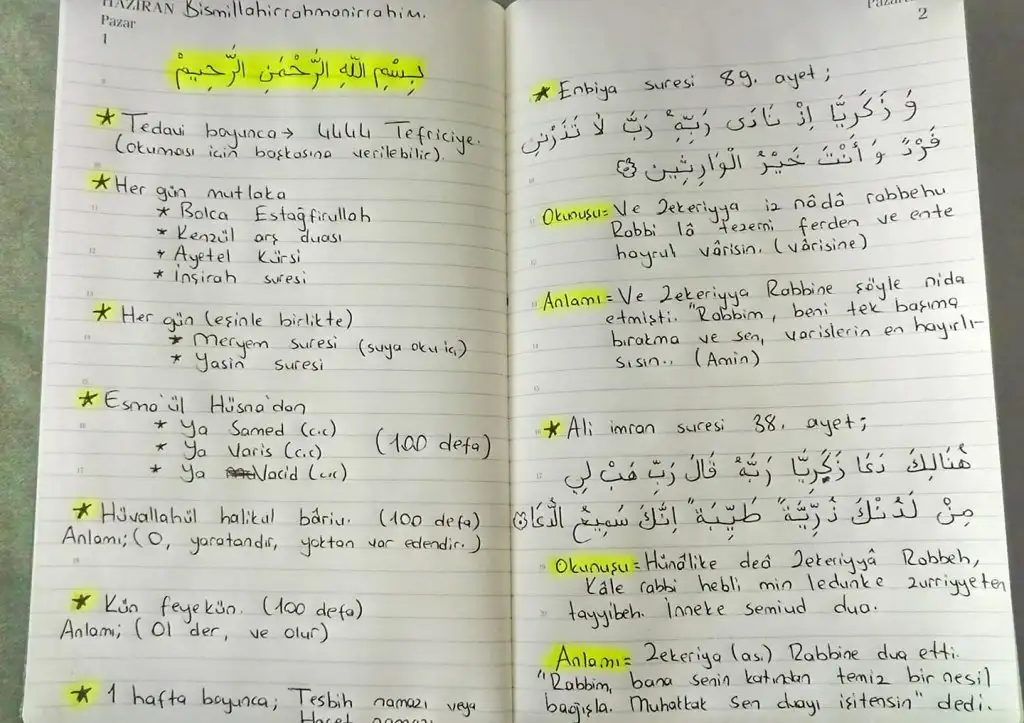 HAZİRAN Bismillahirrahmanirrahim.
Pazar
1
بِسْمِ اللَّهِ الرَّحْمَنِ الرَّحِيمْ
* Tedavi boyunca → 4444 Tefriciye.
(okuması için başkasına verilebilir).
* Her gün mutlaka
* Bolca Estağfirullah
* Kenzül arş duası
* Ayetel Kürsi
* İnşirah suresi
* Her gün (eşinle birlikte)
* Meryem suresi (suya oku iç)
* Yasin suresi
* Esma'ül Hüsna'dan
* Ya Samed (c.c)
* Ya Varis (c.c) (100 defa)
* Ya Vacid (c.c)
* Hüvallahül halikul bâriu. (100 defa)
Anlamı; (O, yaratandır, yoktan var edendir.)
* Kün feyekün. (100 defa)
Anlamı; (Ol der, ve olur)
* 1 hafta boyunca; Tesbih namazı veya
Hacet namazı
2
* Enbiya suresi 89. ayet;
وَ زَكَرِيَّا إِذْ نَادَى رَبَّهُ رَبِّ لَا تَذَرْنِي
فَرْدً وَ أَنْتَ خَيْرُ الْوَارِثِين
Okunuşu= Ve Zekeriyya iz nâdâ rabbehu
Rabbi lâ tezerni ferden ve ente
hayrul vârisin. (vârisine)
Anlamı= Ve Zekeriyya Rabbine şöyle nida
etmişti. "Rabbim, beni tek başıma
bırakma ve sen, varislerin en hayırlı-
sısın.. (Amin)
* Ali imran suresi 38. ayet;
هُنَالِكَ دَعَا زَكَرِيَّا رَبَّهُ قَالَ رَبِّ هَبْ لِي
مِنْ لَدُنْكَ ذُرِّيَّةً طَيِّبَةً إِنَّكَ سَمِيعُ الدُّعَاءِ
Okunuşu= Hünâlike deâ Zekeriyyâ Robbeh,
Kâle rabbi hebli min ledunke zurriyyeten
tayyibeh. İnneke semiud dua.
Anlamı= Zekeriya (as.) Rabbine dua etti.
"Rabbim, bana senin katından temiz bir nesil
bağışla. Muhakkak sen duayı işitensin" dedi.